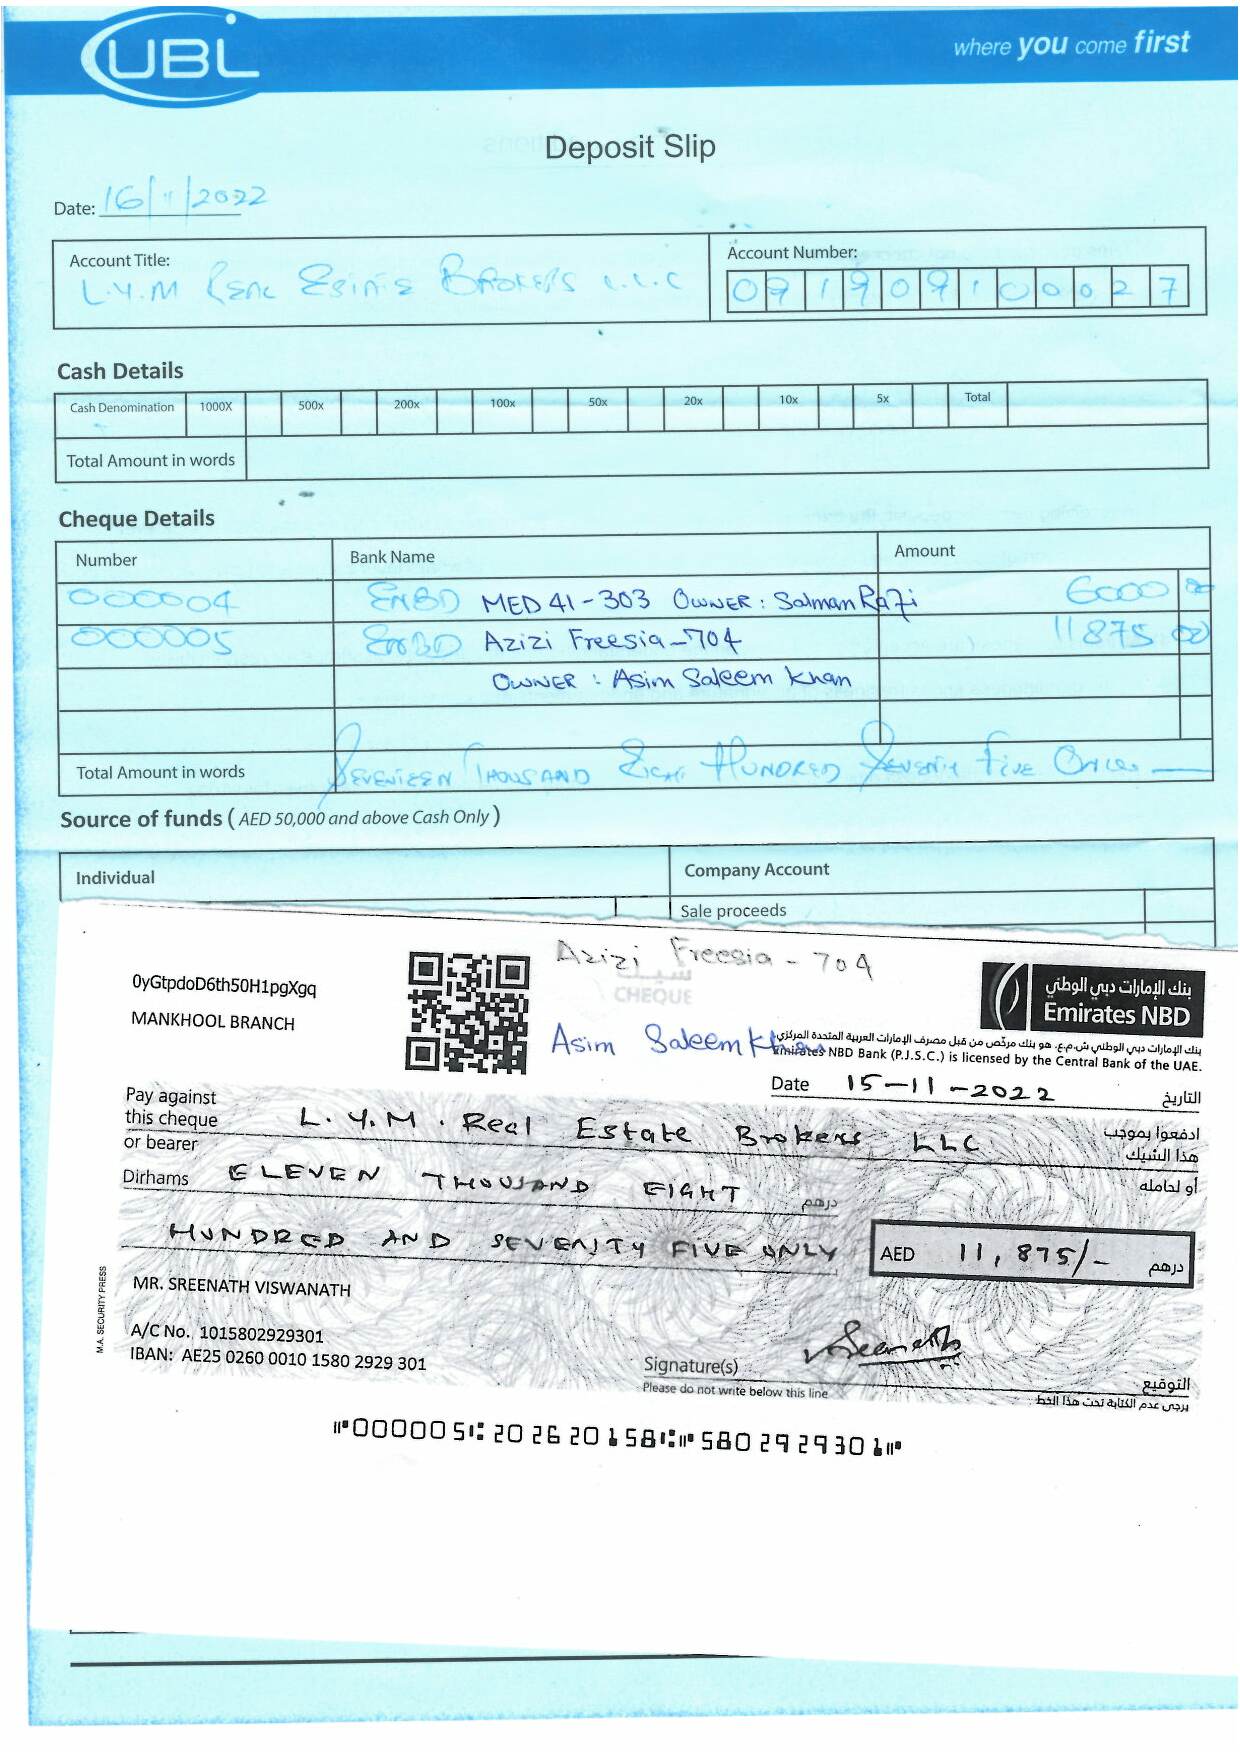 UBL
where you come first
Deposit Slip
Date: 16/11/2022
Account Title:
L.Y.M Real Estate Brokers L.L.C
Account Number:
091909100027
Cash Details
Cash Denomination 1000X 500x 200x 100x 50x 20x 10x 5x Total
Total Amount in words
Cheque Details
Number Bank Name Amount
000004 ENBD MED 41-303 OWNER: Salman Rafi 6000 00
000005 ENBD Azizi Freesia-704 11875 00
OWNER: Asim Saleem Khan
Total Amount in words Seventeen Thousand Eight Hundred Seventy Five Only
Source of funds (AED 50,000 and above Cash Only)
Individual Company Account
Sale proceeds
Azizi Freesia - 704
0yGtpdoD6th50H1pgXgq
شيك
CHEQUE
بنك الإمارات دبي الوطني
Emirates NBD
MANKHOOL BRANCH
Asim Saleem Khan
بنك الإمارات دبي الوطني ش.م.ع. هو بنك مرخّص من قبل مصرف الإمارات العربية المتحدة المركزي
Emirates NBD Bank (P.J.S.C.) is licensed by the Central Bank of the UAE.
Date 15-11-2022 التاريخ
Pay against
this cheque
or bearer
L.Y.M. Real Estate Brokers LLC
ادفعوا بموجب
هذا الشيك
أو لحامله
Dirhams ELEVEN THOUSAND EIGHT درهم
HUNDRED AND SEVENTY FIVE ONLY
AED 11,875/- درهم
M.A. SECURITY PRESS
MR. SREENATH VISWANATH
A/C No. 1015802929301
IBAN: AE25 0260 0010 1580 2929 301
Signature(s) Sreenath التوقيع
Please do not write below this line يرجى عدم الكتابة تحت هذا الخط
⑈000005⑆202620158⑆⑈5802929301⑈